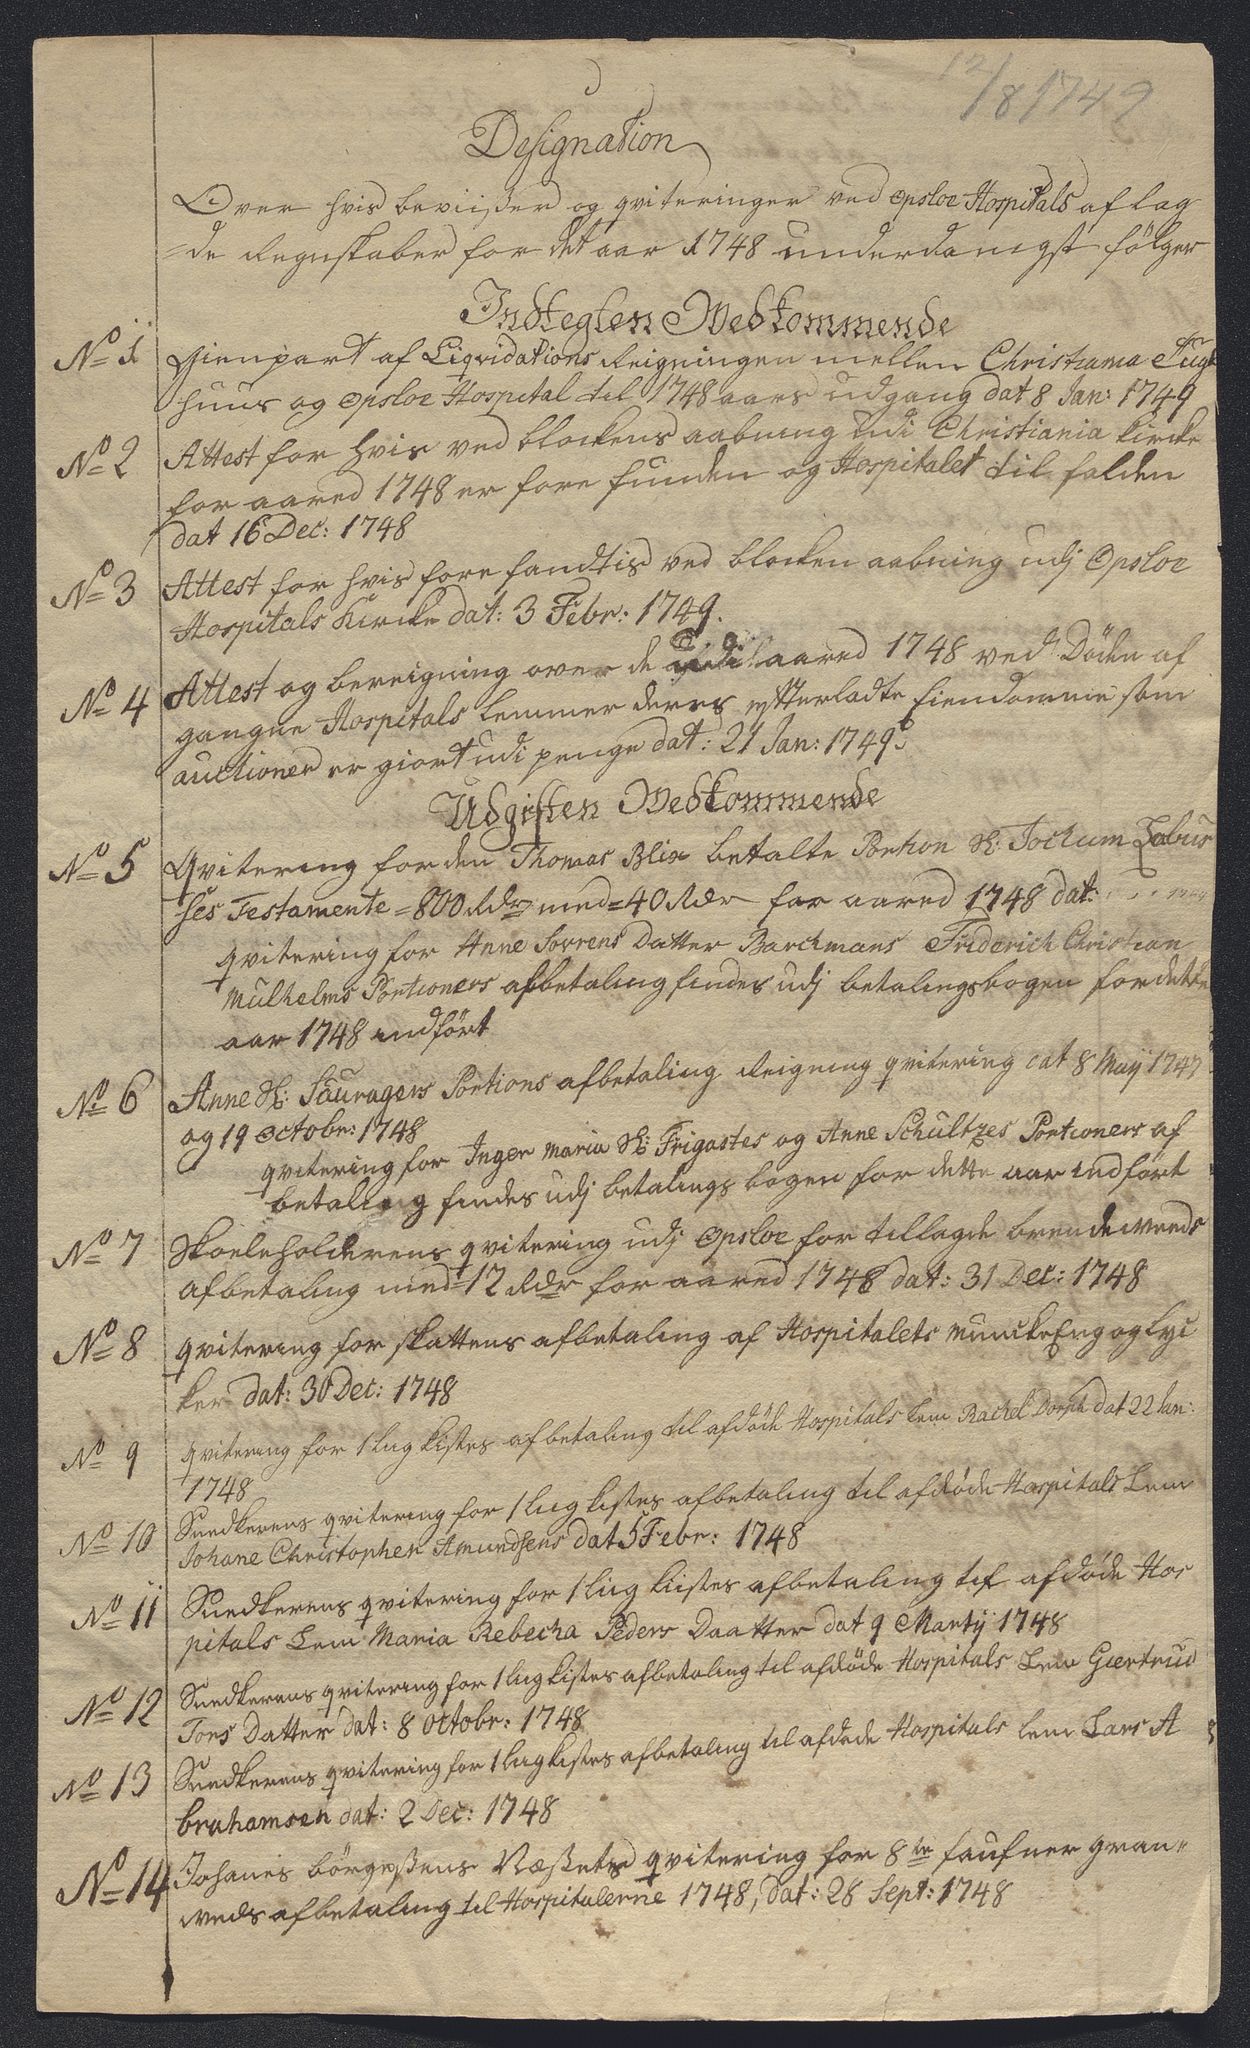 12/8 1749
Designation
Over hvis beviißer og qvitteringer ved Opsloe Hospitals aflag
=de Regnskaber for det aar 1748 underdanigst følger
Indtegten Vedkommende
No 1 Gienpart af Liqvidations Reigningen mellem Christiania Tugt
huus og Opsloe Hospital til 1748 aars udgang dat 8 Jan: 1749
No 2 Attest for hvis ved blockens aabning udi Christiania Kircke
for aared 1748 er fore funden og Hospitalet til falden
dat 16 Dec: 1748
No 3 Attest for hvis fore fandtis ved blocken aabning udj Opsloe
Hospitals Kircke dat: 3 Febr: 1749.
No 4 Attest og bereigning over de udi aared 1748 ved Døden af
gangne Hospitals Lemmer deres efterladte Eiendomme som
auctioner er giort udi penge dat: 21 Jan: 1749
Udgiften Vedkommende
No 5 Qvitering for den Thomas Blix betalte Portion Sl: Jochum Labus
ses Testamente =800 Rdr med =40 Rdr for aared 1748 dat:
qvitering for Anne Sørrens Datter Barchmans Friderich Christian
Mulhelms Portioners afbetaling findes udj betalingsbogen for dette
aar 1748 indført
No 6 Anne Sl: Sauragers Portions afbetaling Reigning qvitering dat 8 Maij 1747
og 19 Octobr: 1748
qvitering for Inger Maria Sl: Frigastes og Anne Schultzes Portioners af
betaling findes udj betalings bogen for dette aar indført
No 7 Skoeleholderens qvitering udj Opsloe for tillagde brendeweeds
afbetaling med =12 Rdr for aared 1748 dat: 31 Dec: 1748
No 8 qvitering for skattens afbetaling af Hospitalets Muncke Eng og Lyc
ker dat: 30 Dec: 1748
No 9 qvitering for 1 Liigkistes afbetaling til afdøde Hospitals Lem Rachel Dorph dat 22 Jan:
1748
No 10 Snedkerens qvitering for 1 Liigkistes afbetaling til afdøde Hospitals Lem
Johane Christopher Amundsens dat 5 Febr: 1748
No 11 Snedkerens qvitering for 1 Liigkistes afbetaling til afdøde Hos
pitals Lem Maria Rebecha Peders Daatter dat 9 Martij 1748
No 12 Snedkerens qvitering for 1 Liigkistes afbetaling til afdøde Hospitals Lem Giertrud
Tors Datter dat: 8 Octobr: 1748
No 13 Snedkerens qvitering for 1 Liigkistes afbetaling til afdøde Hospitals Lem Lars A
brahamsen dat: 2 Dec: 1748
No 14 Johanes Børgeßens Næßets qvitering for 8te faufner gran=
weds afbetaling til Hospitalerne 1748, dat: 28 Sept: 1748